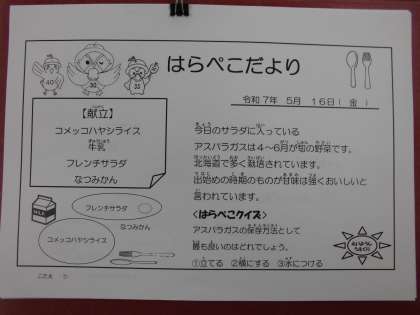 はらぺこだより
令和7年 5月 16日( 金 )
【献立】
コメッコハヤシライス
牛乳
フレンチサラダ
なつみかん
今日のサラダに入っている
アスパラガスは4～6月が旬の野菜です。
北海道で多く栽培されています。
出始めの時期のものが甘味は強くおいしいと
言われています。
<はらぺこクイズ>
アスパラガスの保存方法として
最も良いのはどれでしょう。
①立てる ②横にする ③水につける
フレンチサラダ
なつみかん
コメッコハヤシライス
MILK
40
30